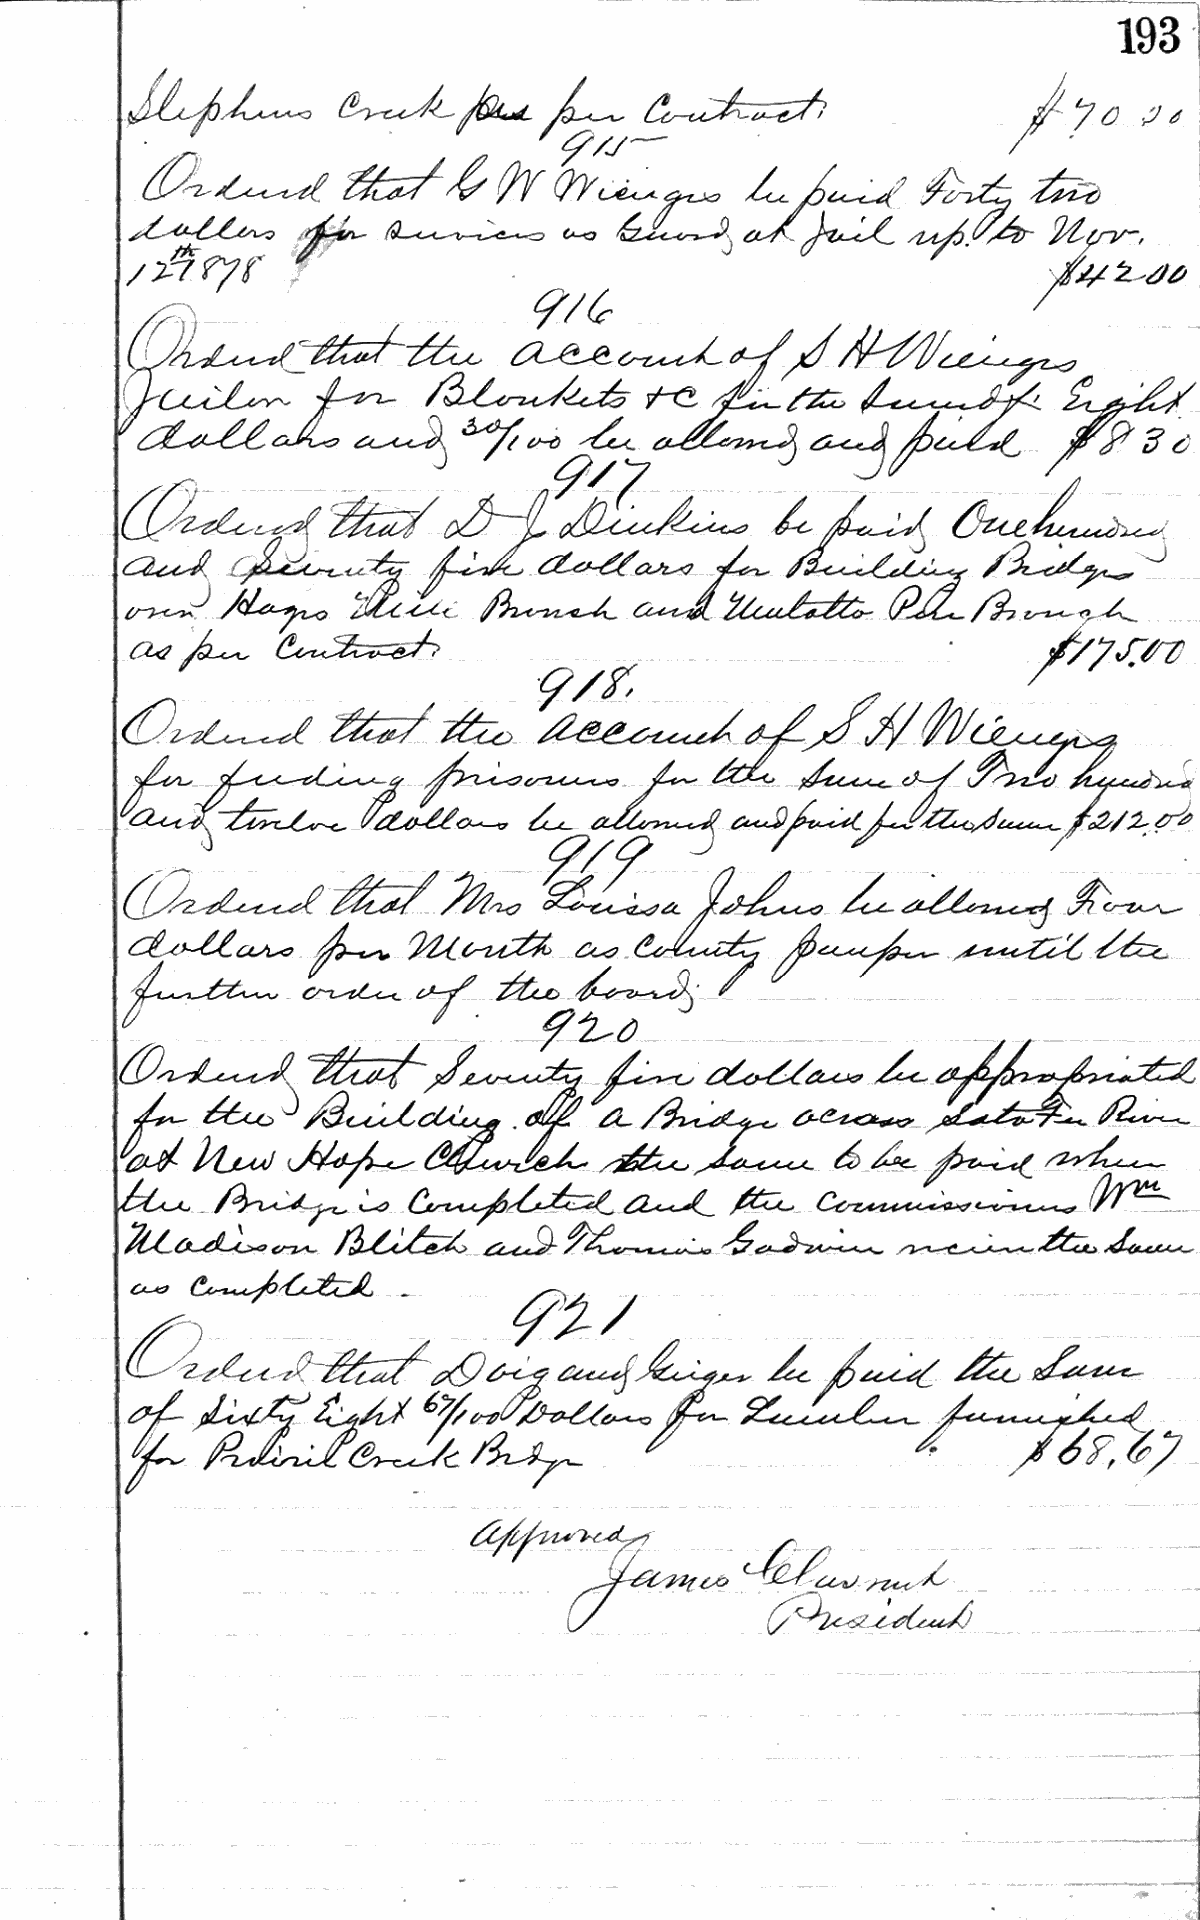 193
Stephens Creek per Contract. $70 00
915
Ordered that G W Wienges be paid Forty two
dollars for services as Guard at Jail up to Nov.
12th 1878 $42 00
916
Ordered that the account of S H Wienges
Jailor for Blankets & C for the Sum of Eight
dollars and 30/100 be allowed and paid $8 30
917
Ordered that D J Dinkins be paid One hundred
and Seventy five dollars for Building Bridges
over Hages Branch and Mulatto Pen Branch
as per Contract. $175.00
918.
Ordered that the account of S H Wienges
for feeding prisoners for the Sum of Two hundred
and twelve dollars be allowed and paid for the Same $212.00
919
Ordered that Mrs Louissa Johns be allowed Four
dollars per Month as County pauper until the
further order of the board.
920
Ordered that Seventy five dollars be appropriated
for the Building of a Bridge across Fee River
at New Hope Church the same to be paid when
the Bridge is Completed and the Commissioners Wm
Madison Blitch and Thomas Godwin receive the Same
as Completed
921
Ordered that Doig and Geiger be paid the Sum
of Sixty Eight 67/100 Dollars for Lumber furnished
for Creek Bridge $68.67
Approved
James
President